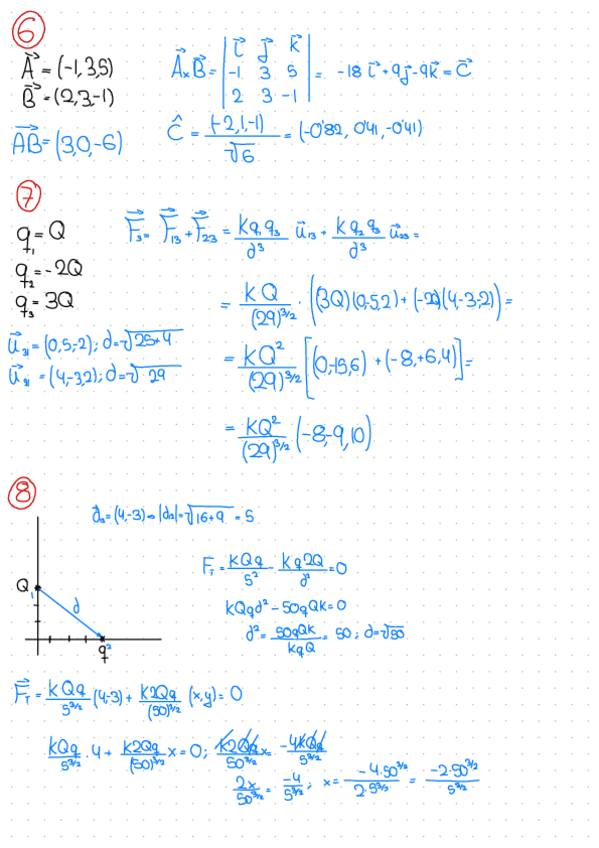 6
A⃗ = (-1,3,5)
B⃗ = (2,3,-1)
A⃗xB⃗ = | i⃗ j⃗ k⃗ |
| -1 3 5 | = -18 i⃗ + 9j⃗ - 9k⃗ = C⃗
| 2 3 -1 |
AB⃗ = (3,0,-6)
Ĉ = (-2,1,-1)/√6 = (-0'82, 0'41, -0'41)
7
q₁ = Q
q₂ = -2Q
q₃ = 3Q
F⃗₃ = F⃗₁₃ + F⃗₂₃ = kq₁q₃/d³ u⃗₁₃ + kq₂q₃/d³ u⃗₂₃ =
= kQ/(29)^3/2 · ((3Q)(0,-5,2) + (-2Q)(4,-3,-2)) =
u⃗₃₁ = (0,5,-2); d = √25+4
u⃗₃₁ = (4,-3,2); d = √29
= kQ²/(29)^3/2 [(0,-15,6) + (-8,+6,4)] =
= kQ²/(29)^3/2 (-8,-9,10)
8
= (4,-3) → |d₁₂| = √16+9 = 5
F_T = kQq/5² - kq2Q/d² = 0
kQqd² - 50qQk = 0
d² = 50qQk/kqQ = 50; d = √50
Q
1
d
2
q
F⃗_T = kQq/5^3/2 (4,-3) + k2Qq/(50)^3/2 (x,y) = 0
kQq/5^3/2 · 4 + k2Qq/(50)^3/2 x = 0; k2Qq/50^3/2 x = -4kQq/5^3/2
2x/50^3/2 = -4/5^3/2; x = -4·50^3/2/2·5^3/2 = -2·50^3/2/5^3/2